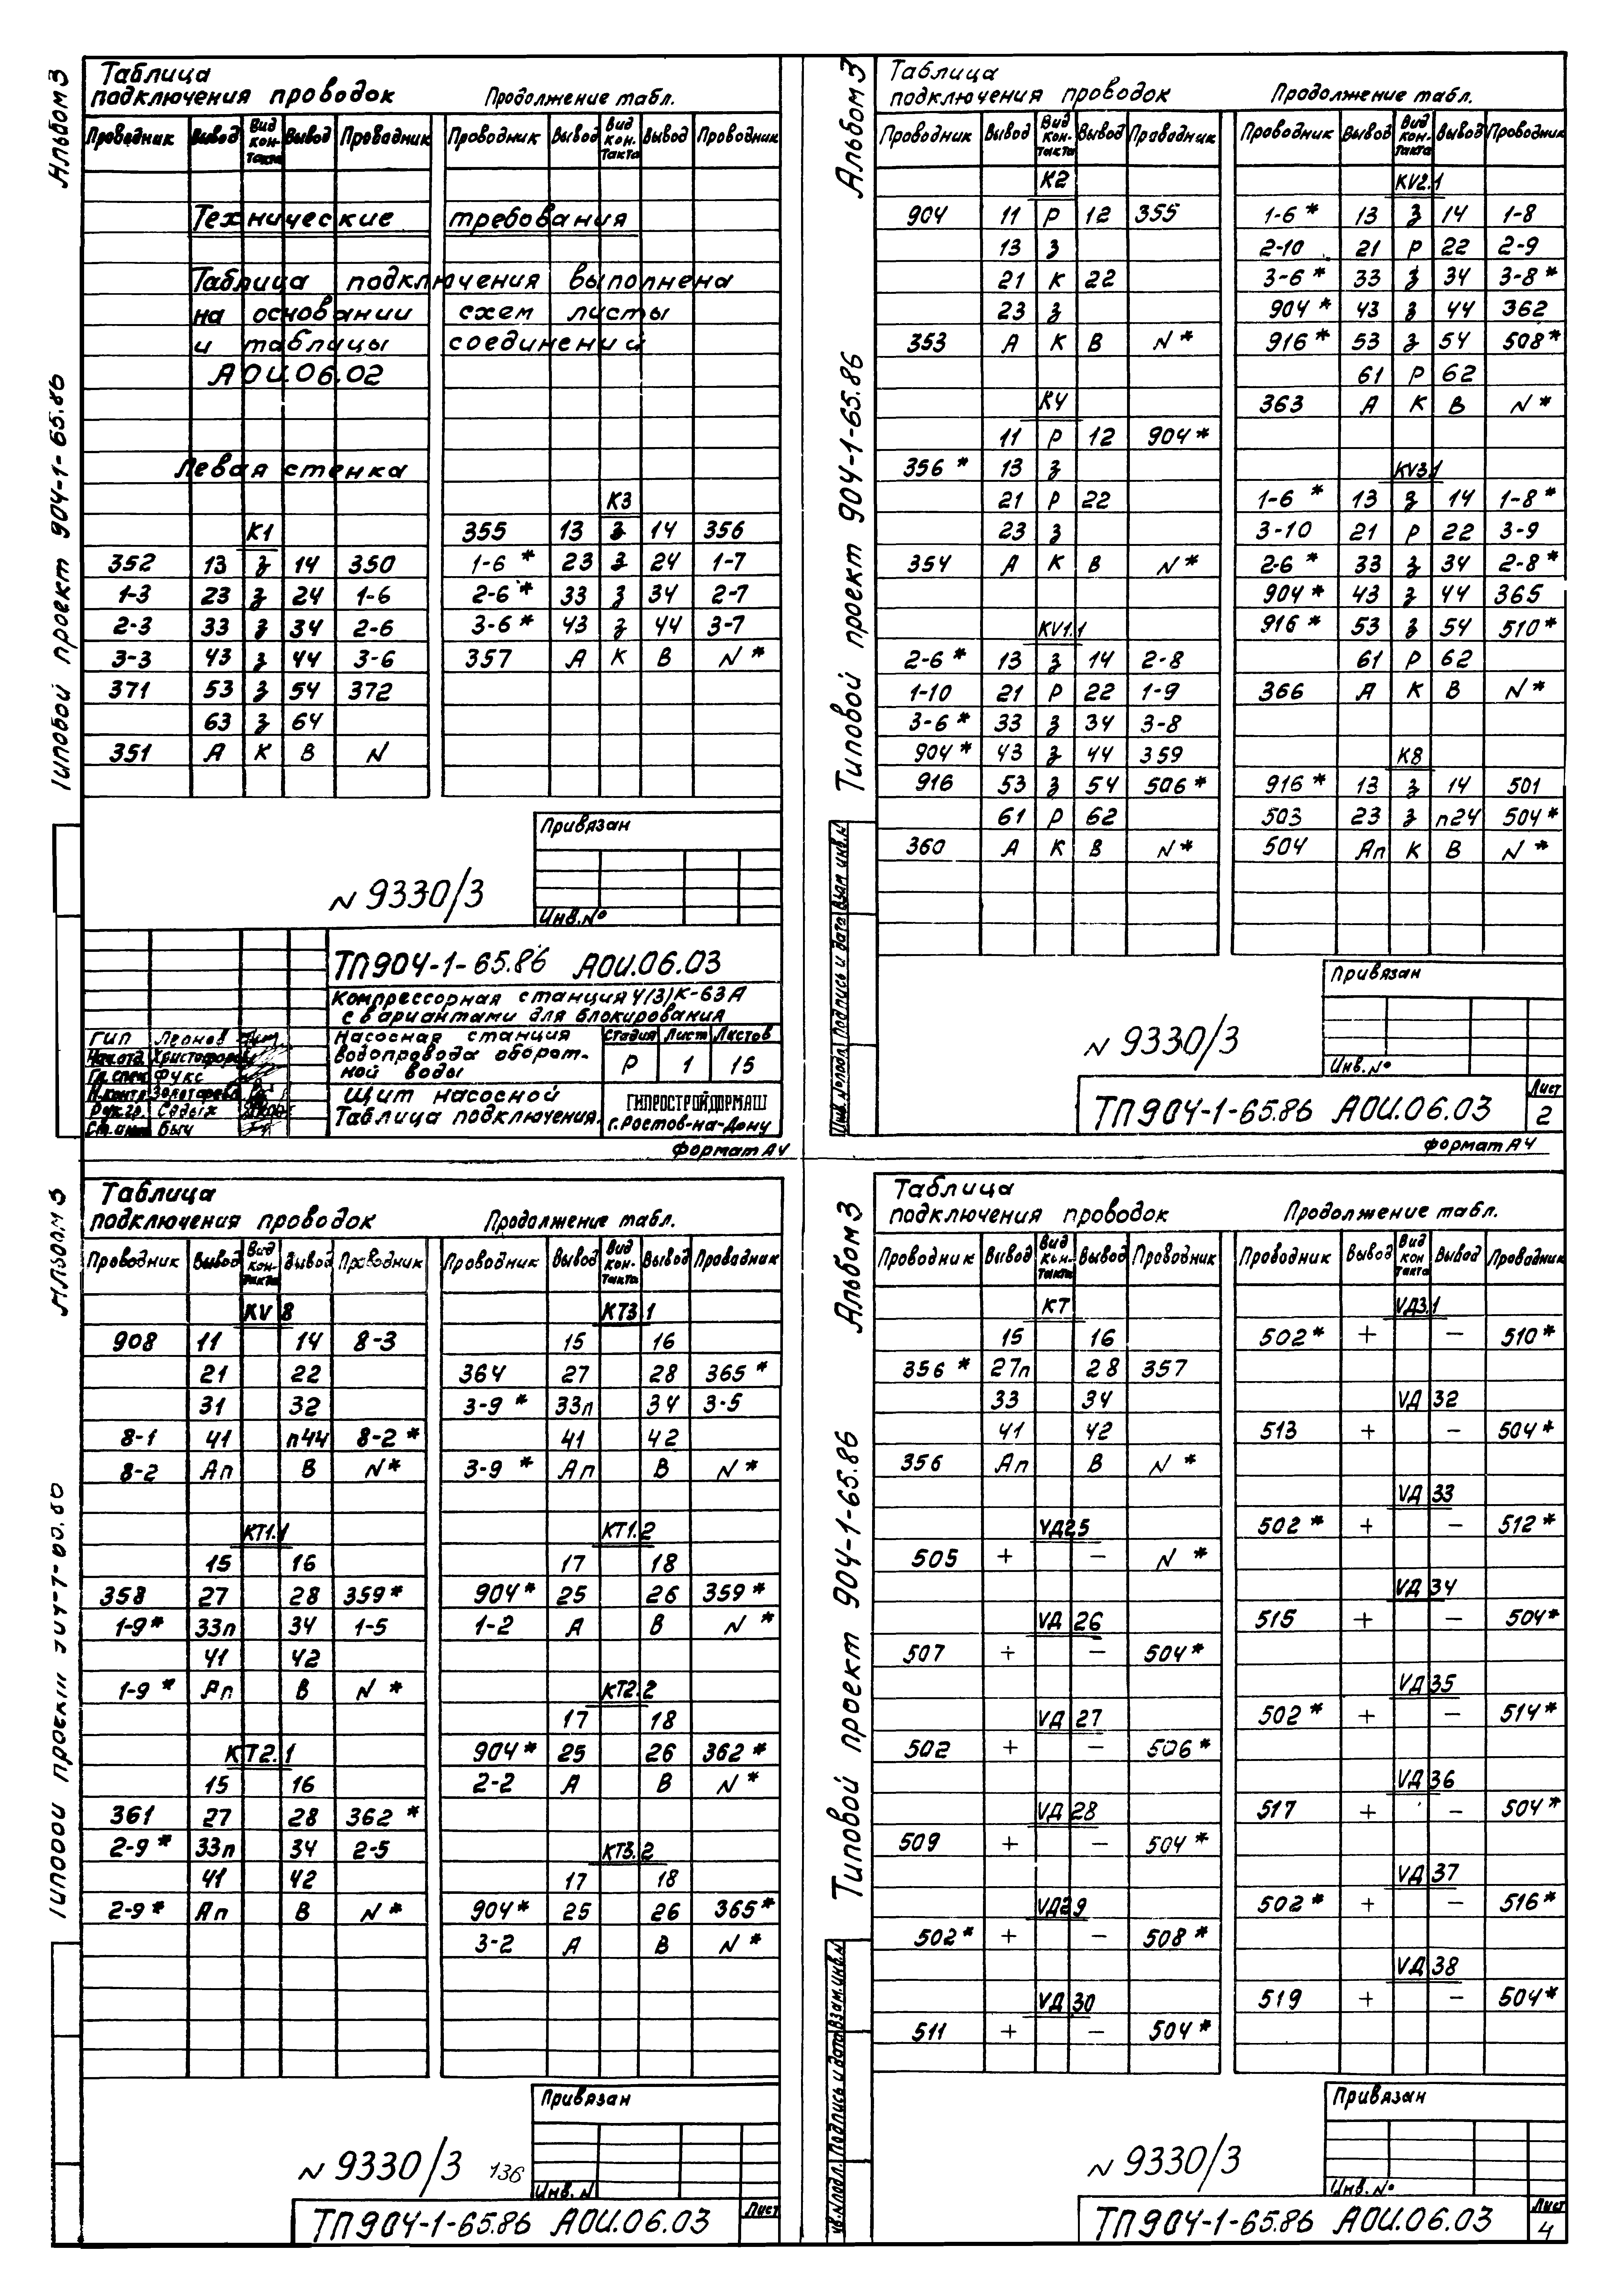 Альбом 3
Типовой проект 904-1-65.86
Таблица
подключения проводок Продолжение табл.
Проводник Вывод Вид контакта Вывод Проводник Проводник Вывод Вид контакта Вывод Проводник
Технические требования
Таблица подключения выполнена
на основании схем листы
и таблицы соединений
АОИ.06.02
Левая стенка
К1
352 13 з 14 350
1-3 23 з 24 1-6
2-3 33 з 34 2-6
3-3 43 з 44 3-6
371 53 з 54 372
63 з 64
351 А К В N
К3
355 13 з 14 356
1-6* 23 з 24 1-7
2-6* 33 з 34 2-7
3-6* 43 з 44 3-7
357 А К В N*
Привязан
Инв. №
N 9330/3
ТП904-1-65.86 АОИ.06.03
Компрессорная станция 4(3)К-63А
с вариантами для блокирования
ГИП Леонов
Нач.отд. Христофоров
Гл.спец. Фукс
Н.контр. Золотарева
Рук.гр. Седых
Ст.инж. Быч
Насосная станция
водопровода оборот-
ной воды
Стадия Лист Листов
Р 1 15
Щит насосной
Таблица подключения.
ГИПРОСТРОЙДОРМАШ
г.Ростов-на-Дону
Формат А4
Альбом 3
Типовой проект 904-1-65.86
Таблица
подключения проводок Продолжение табл.
Проводник Вывод Вид контакта Вывод Проводник Проводник Вывод Вид контакта Вывод Проводник
К2
904 11 Р 12 355
13 з
21 К 22
23 з
353 А К В N*
К4
11 Р 12 904*
356* 13 з
21 Р 22
23 з
354 А К В N*
KV1.1
2-6* 13 з 14 2-8
1-10 21 Р 22 1-9
3-6* 33 з 34 3-8
904* 43 з 44 359
916 53 з 54 506*
61 Р 62
360 А К В N*
KV2.1
1-6* 13 з 14 1-8
2-10 21 Р 22 2-9
3-6* 33 з 34 3-8*
904* 43 з 44 362
916* 53 з 54 508*
61 Р 62
363 А К В N*
KV3.1
1-6* 13 з 14 1-8*
3-10 21 Р 22 3-9
2-6* 33 з 34 2-8*
904* 43 з 44 365
916* 53 з 54 510*
61 Р 62
366 А К В N*
К8
916* 13 з 14 501
503 23 з п24 504*
504 Ап К В N*
Инв.№подл. Подпись и дата Взам.инв.N
Привязан
Инв. №
N 9330/3
ТП904-1-65.86 АОИ.06.03
Лист
2
Формат А4
Альбом 3
Типовой проект
Таблица
подключения проводок Продолжение табл.
Проводник Вывод Вид контакта Вывод Проводник Проводник Вывод Вид контакта Вывод Проводник
KV 8
908 11 14 8-3
21 22
31 32
8-1 41 п44 8-2*
8-2 Ап В N*
КТ1.1
15 16
358 27 28 359*
1-9* 33п 34 1-5
41 42
1-9* Ап В N*
КТ2.1
15 16
361 27 28 362*
2-9* 33п 34 2-5
41 42
2-9* Ап В N*
КТ3.1
15 16
364 27 28 365*
3-9* 33п 34 3-5
41 42
3-9* Ап В N*
КТ1.2
17 18
904* 25 26 359*
1-2 А В N*
КТ2.2
17 18
904* 25 26 362*
2-2 А В N*
КТ3.2
17 18
904* 25 26 365*
3-2 А В N*
Привязан
Инв. N
N 9330/3 136
ТП904-1-65.86 АОИ.06.03
Лист
Альбом 3
Типовой проект 904-1-65.86
Таблица
подключения проводок Продолжение табл.
Проводник Вывод Вид контакта Вывод Проводник Проводник Вывод Вид контакта Вывод Проводник
КТ
15 16
356* 27п 28 357
33 34
41 42
356 Ап В N*
VД25
505 + − N*
VД 26
507 + − 504*
VД 27
502 + − 506*
VД 28
509 + − 504*
VД29
502* + − 508*
VД 30
511 + − 504*
VД3.1
502* + − 510*
VД 32
513 + − 504*
VД 33
502* + − 512*
VД 34
515 + − 504*
VД 35
502* + − 514*
VД 36
517 + − 504*
VД 37
502* + − 516*
VД 38
519 + − 504*
Инв.№подл. Подпись и дата Взам.инв.N
Привязан
Инв. №
N 9330/3
ТП904-1-65.86 АОИ.06.03
Лист
4